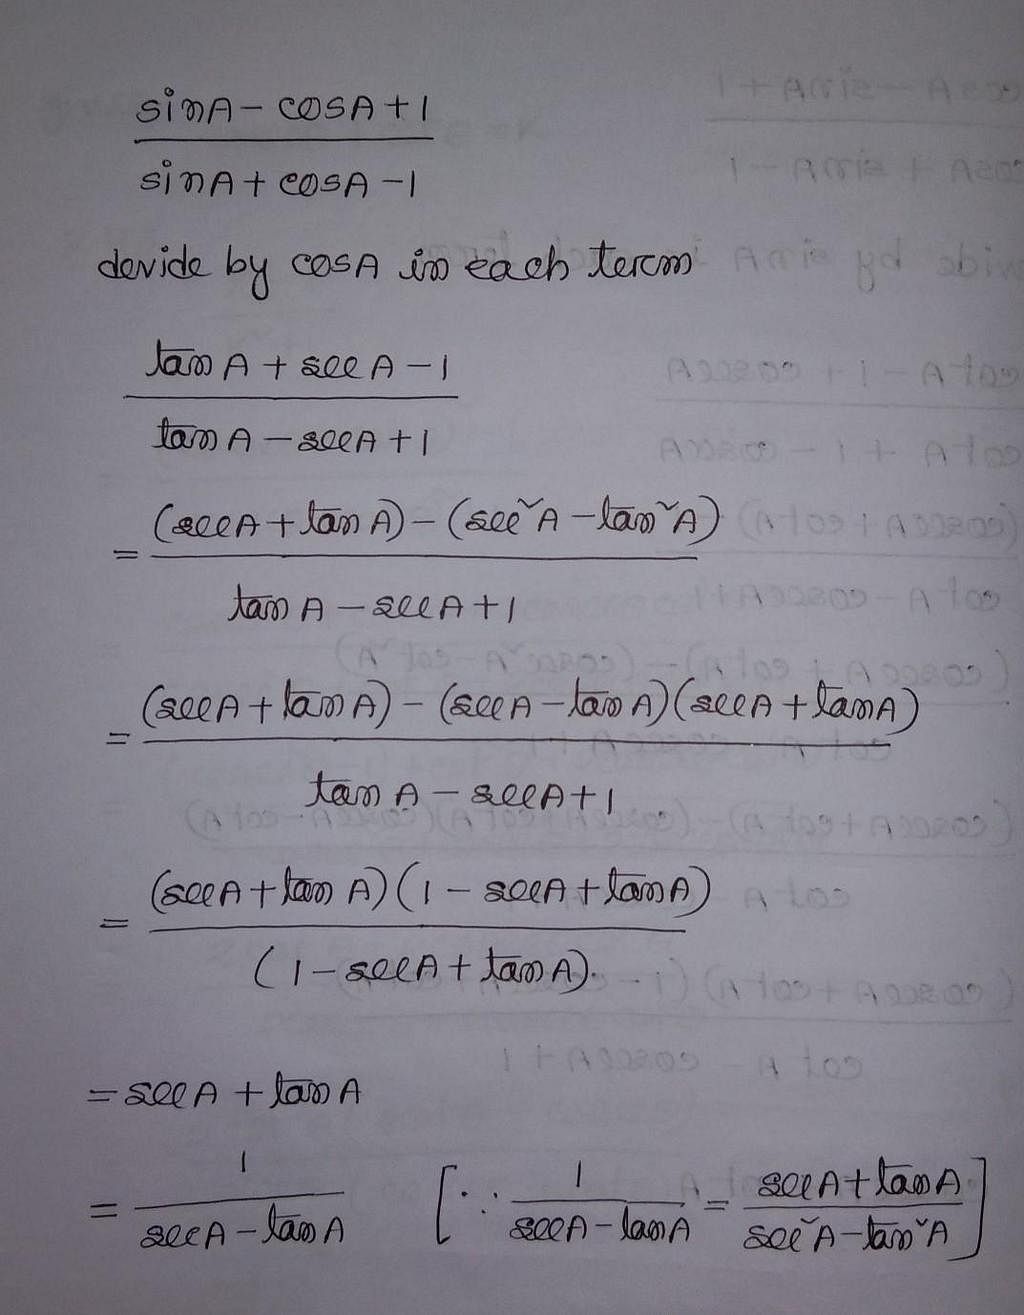 sinA - cosA + 1
sinA + cosA - 1
devide by cosA in each term
tanA + secA - 1
tanA - secA + 1
= (secA + tanA) - (sec²A - tan²A)
tanA - secA + 1
= (secA + tanA) - (secA - tanA)(secA + tanA)
tanA - secA + 1
= (secA + tanA)(1 - secA + tanA)
(1 - secA + tanA).
= secA + tanA
= 1 / (secA - tanA) [∵ 1 / (secA - tanA) = (secA + tanA) / (sec²A - tan²A)]